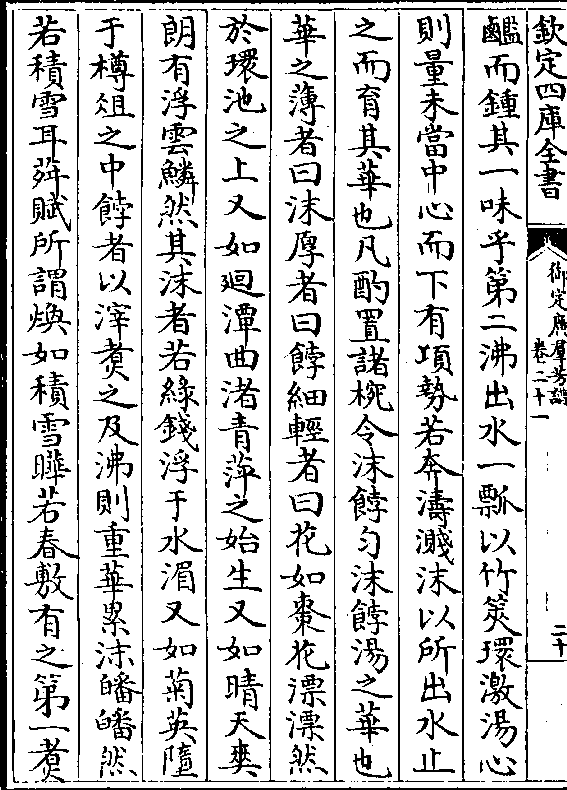 欽定四庫全書
御定廣羣芳譜
卷二十一
二十
㽉而鍾其一味乎第二沸出水一瓢以竹筴環激湯心
則量末當中心而下有頃勢若奔濤濺沫以所出水止
之而育其華也凡酌置諸椀令沫餑勻沫餑湯之華也
華之薄者曰沫厚者曰餑細輕者曰花如棗花漂漂然
於環池之上又如迴潭曲渚青萍之始生又如晴天爽
朗有浮雲鱗然其沫者若綠錢浮于水湄又如菊英墮
于樽俎之中餑者以滓煑之及沸則重華累沫皤皤然
若積雪耳荈賦所謂煥如積雪曄若春敷有之第一煑